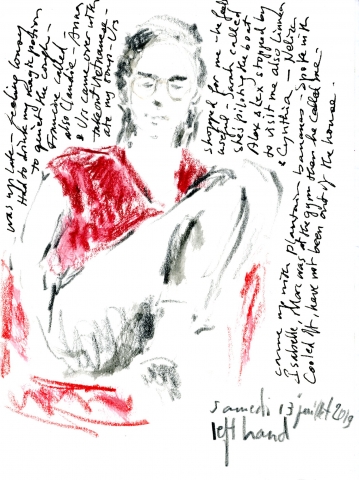 was up late - feeling lousy
Had to drink my magic potion
to quiet the cough -
Francise called
also Claudie - Anna
& V/o came over with
takeout Vietnamese -
ate my soup. V/o
shopped for me - he feels
useful - Sarah called
she's piloting the boat
Alex & Lex stopped by
to visit me also Linda
& Cynthia - Neltza
came up with plantain bananas - I spoke with
Isabelle. Marc was at the gym then he called me.
Cooled off. have not been out of the house.
samedi 13 juillet 2019
left hand